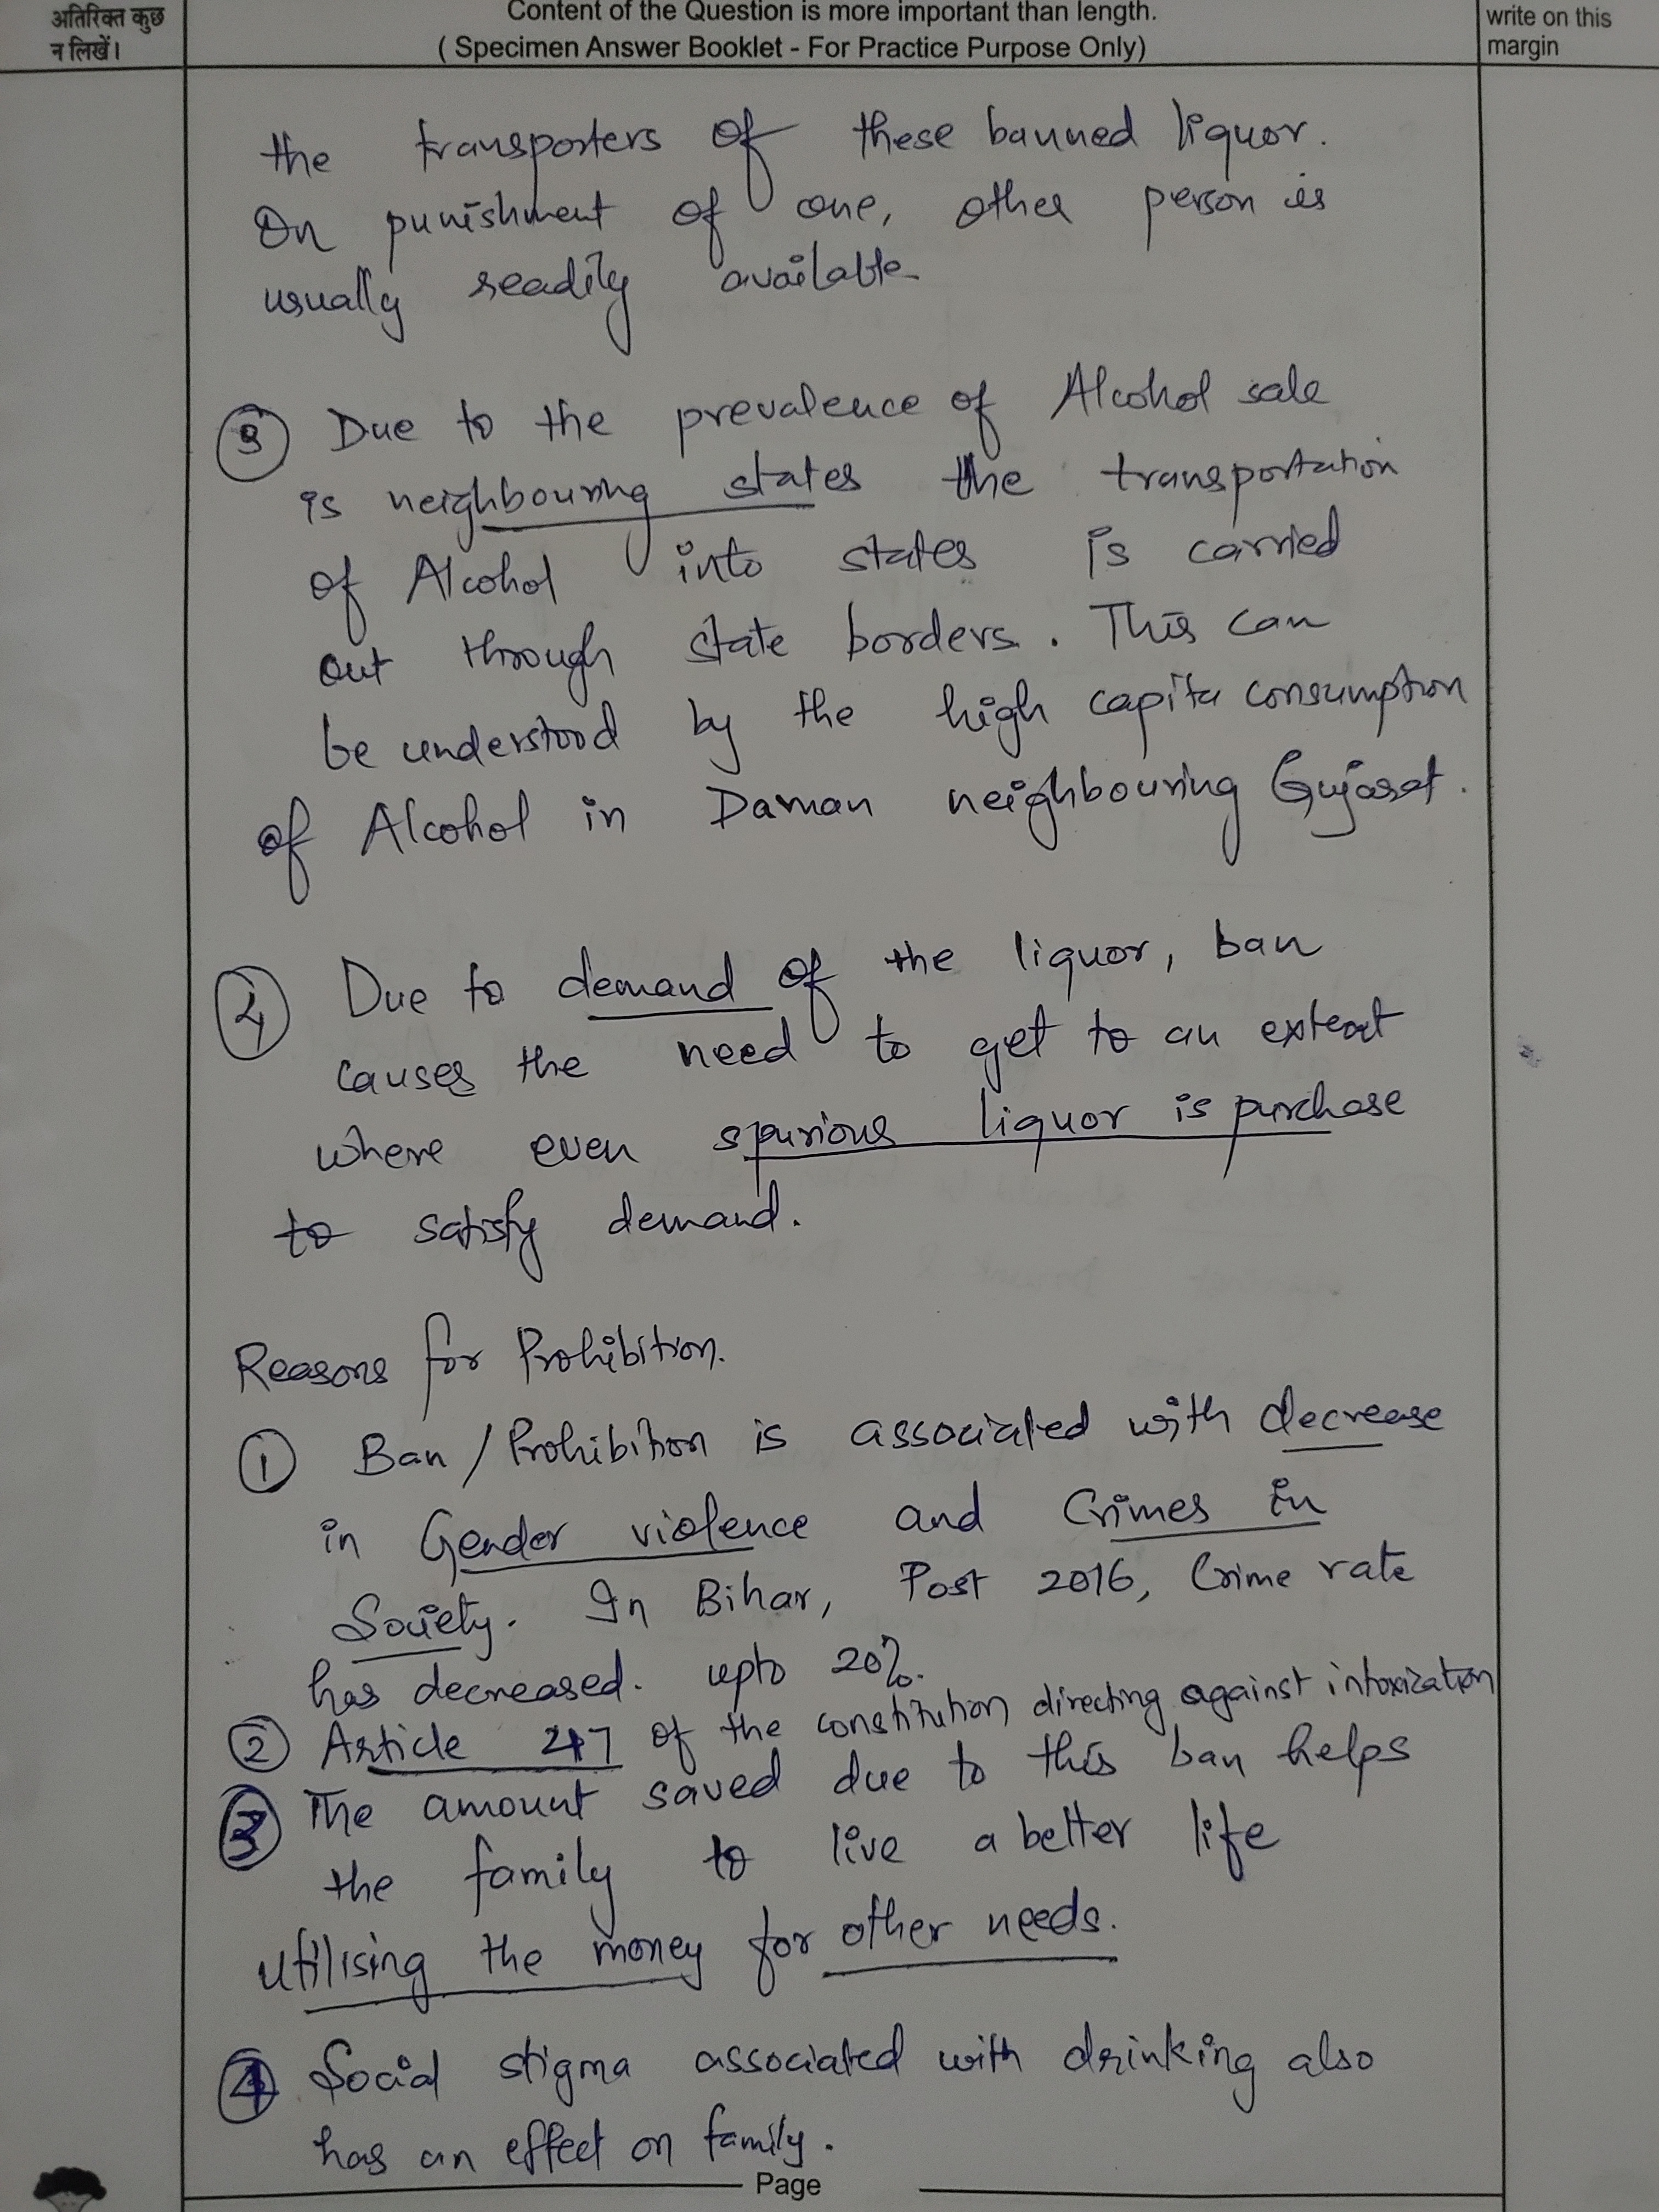 अतिरिक्त कुछ
न लिखें।
Content of the Question is more important than length.
( Specimen Answer Booklet - For Practice Purpose Only)
write on this
margin
the transporters of these banned liquor.
On punishment of one, other person is
usually readily available
③ Due to the prevalence of Alcohol sale
is neighbouring states the transportation
of Alcohol into states is carried
out through state borders. This can
be understood by the high capita consumption
of Alcohol in Daman neighbouring Gujarat.
④ Due to demand of the liquor, ban
causes the need to get to an extent
where even spurious liquor is purchase
to satisfy demand.
Reasons for Prohibition.
① Ban / Prohibition is associated with decrease
in Gender violence and Crimes in
Society. In Bihar, Post 2016, Crime rate
has decreased. upto 20%.
② Article 47 of the constitution directing against intoxication
③ The amount saved due to this ban helps
the family to live a better life
utilising the money for other needs.
④ Social stigma associated with drinking also
has an effect on family.
Page